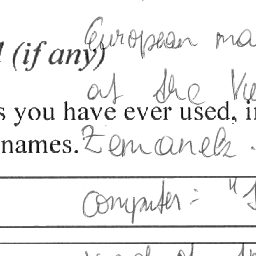 European ma
(if any)
at the Vie
s you have ever used, in
names. Zemanek.
computer: "